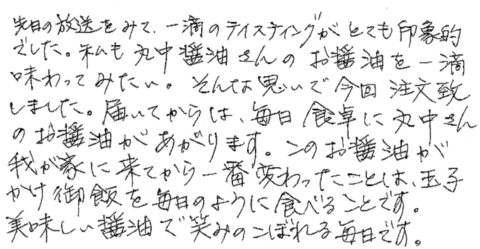 先日の放送をみて、一滴のテイスティングがとても印象的
でした。私も丸中醤油さんのお醤油を一滴
味わってみたい。そんな思いで今回注文致
しました。届いてからは、毎日食卓に丸中さん
のお醤油があがります。このお醤油が
我が家に来てから一番変わったことは、玉子
かけ御飯を毎日のように食べることです。
美味しい醤油で笑みのこぼれる毎日です。